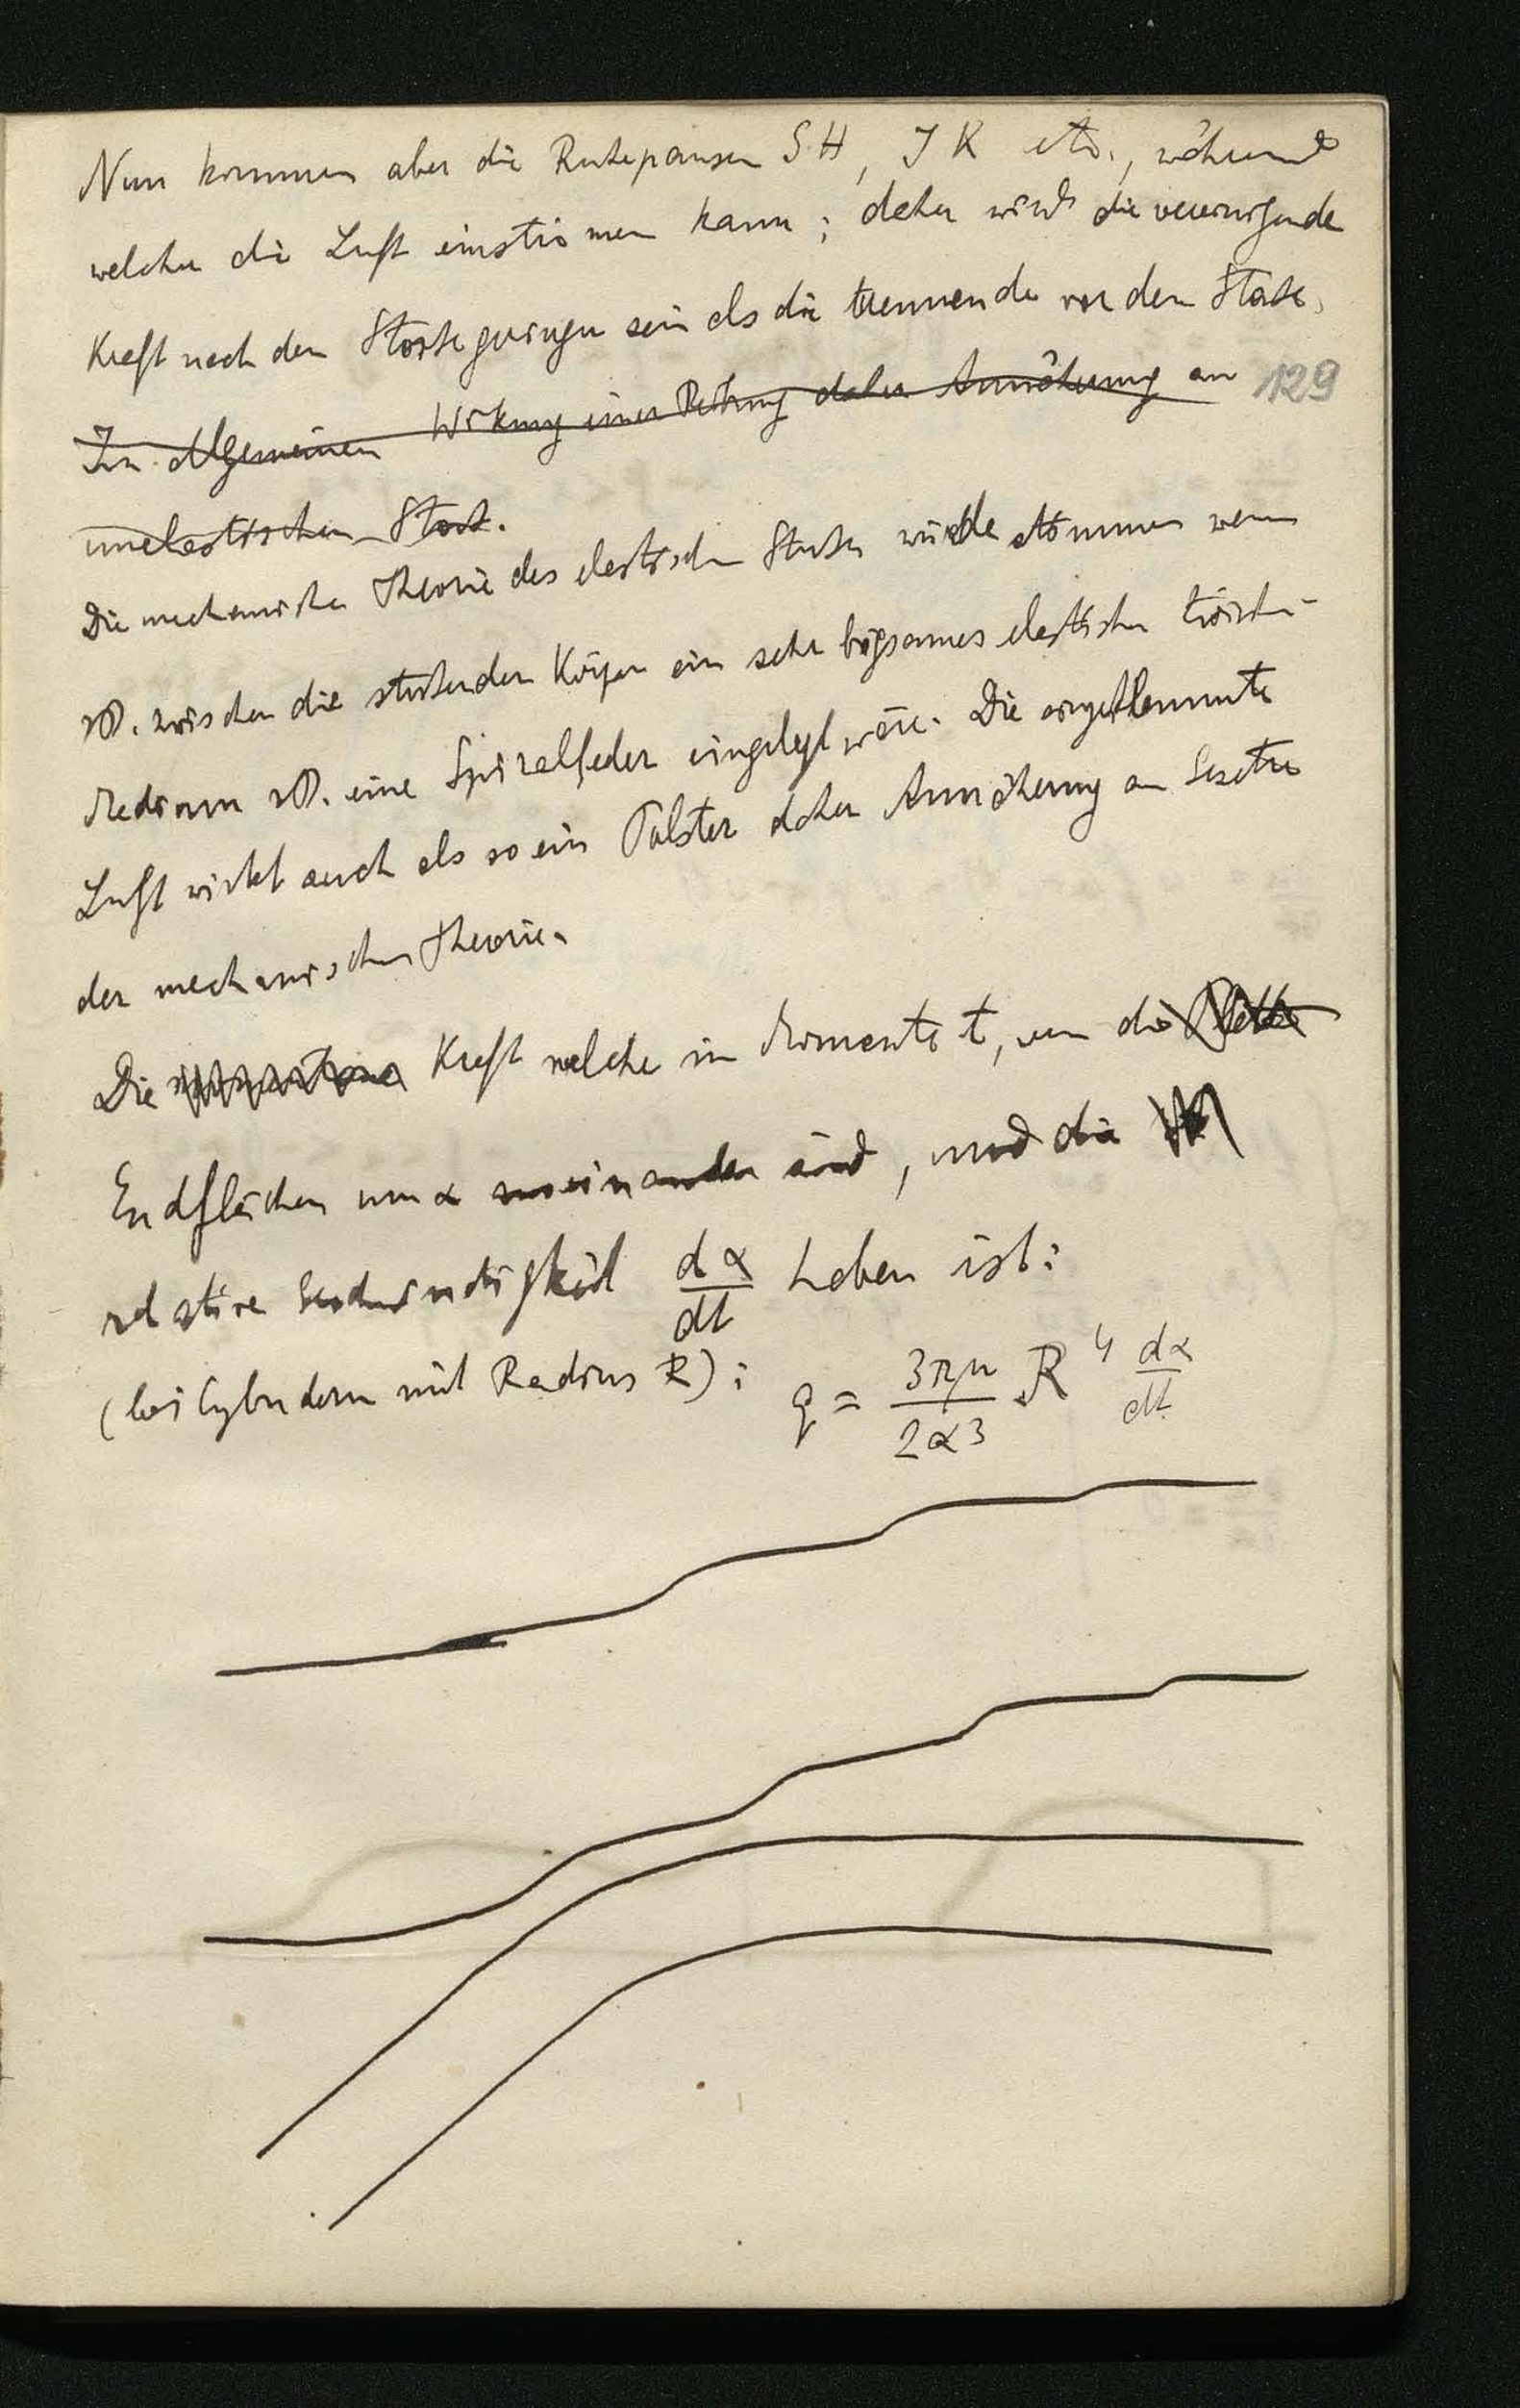 Nun kommen aber die Ruhepausen GH, JK etc., während
welcher die Luft einströmen kann; daher wird die vereinigende
Kraft nach dem Stosse geringer sein als die trennende vor dem Stosse.
Im Allgemeinen Wirkung einer Reibung daher Annäherung an
129
unelastischen Stoss.
Die mechanische Theorie des elastischen Stosses würde stimmen wenn
zB. zwischen die stossenden Körper ein sehr biegsames elastisches
Medium zB. eine Spiralfeder eingelegt wäre. Die eingeklemmte
Luft wirkt auch als so ein Polster daher Annäherung an Gesetze
der mechanischen Theorie.
Die Kraft welche im Momente t, wenn die Platte
Endflächen um α auseinander sind, und die
relative Geschwindigkeit dα/dt haben ist:
(bei Cylindern mit Radius R): q = 3πμ/2α3 R^4 dα/dt